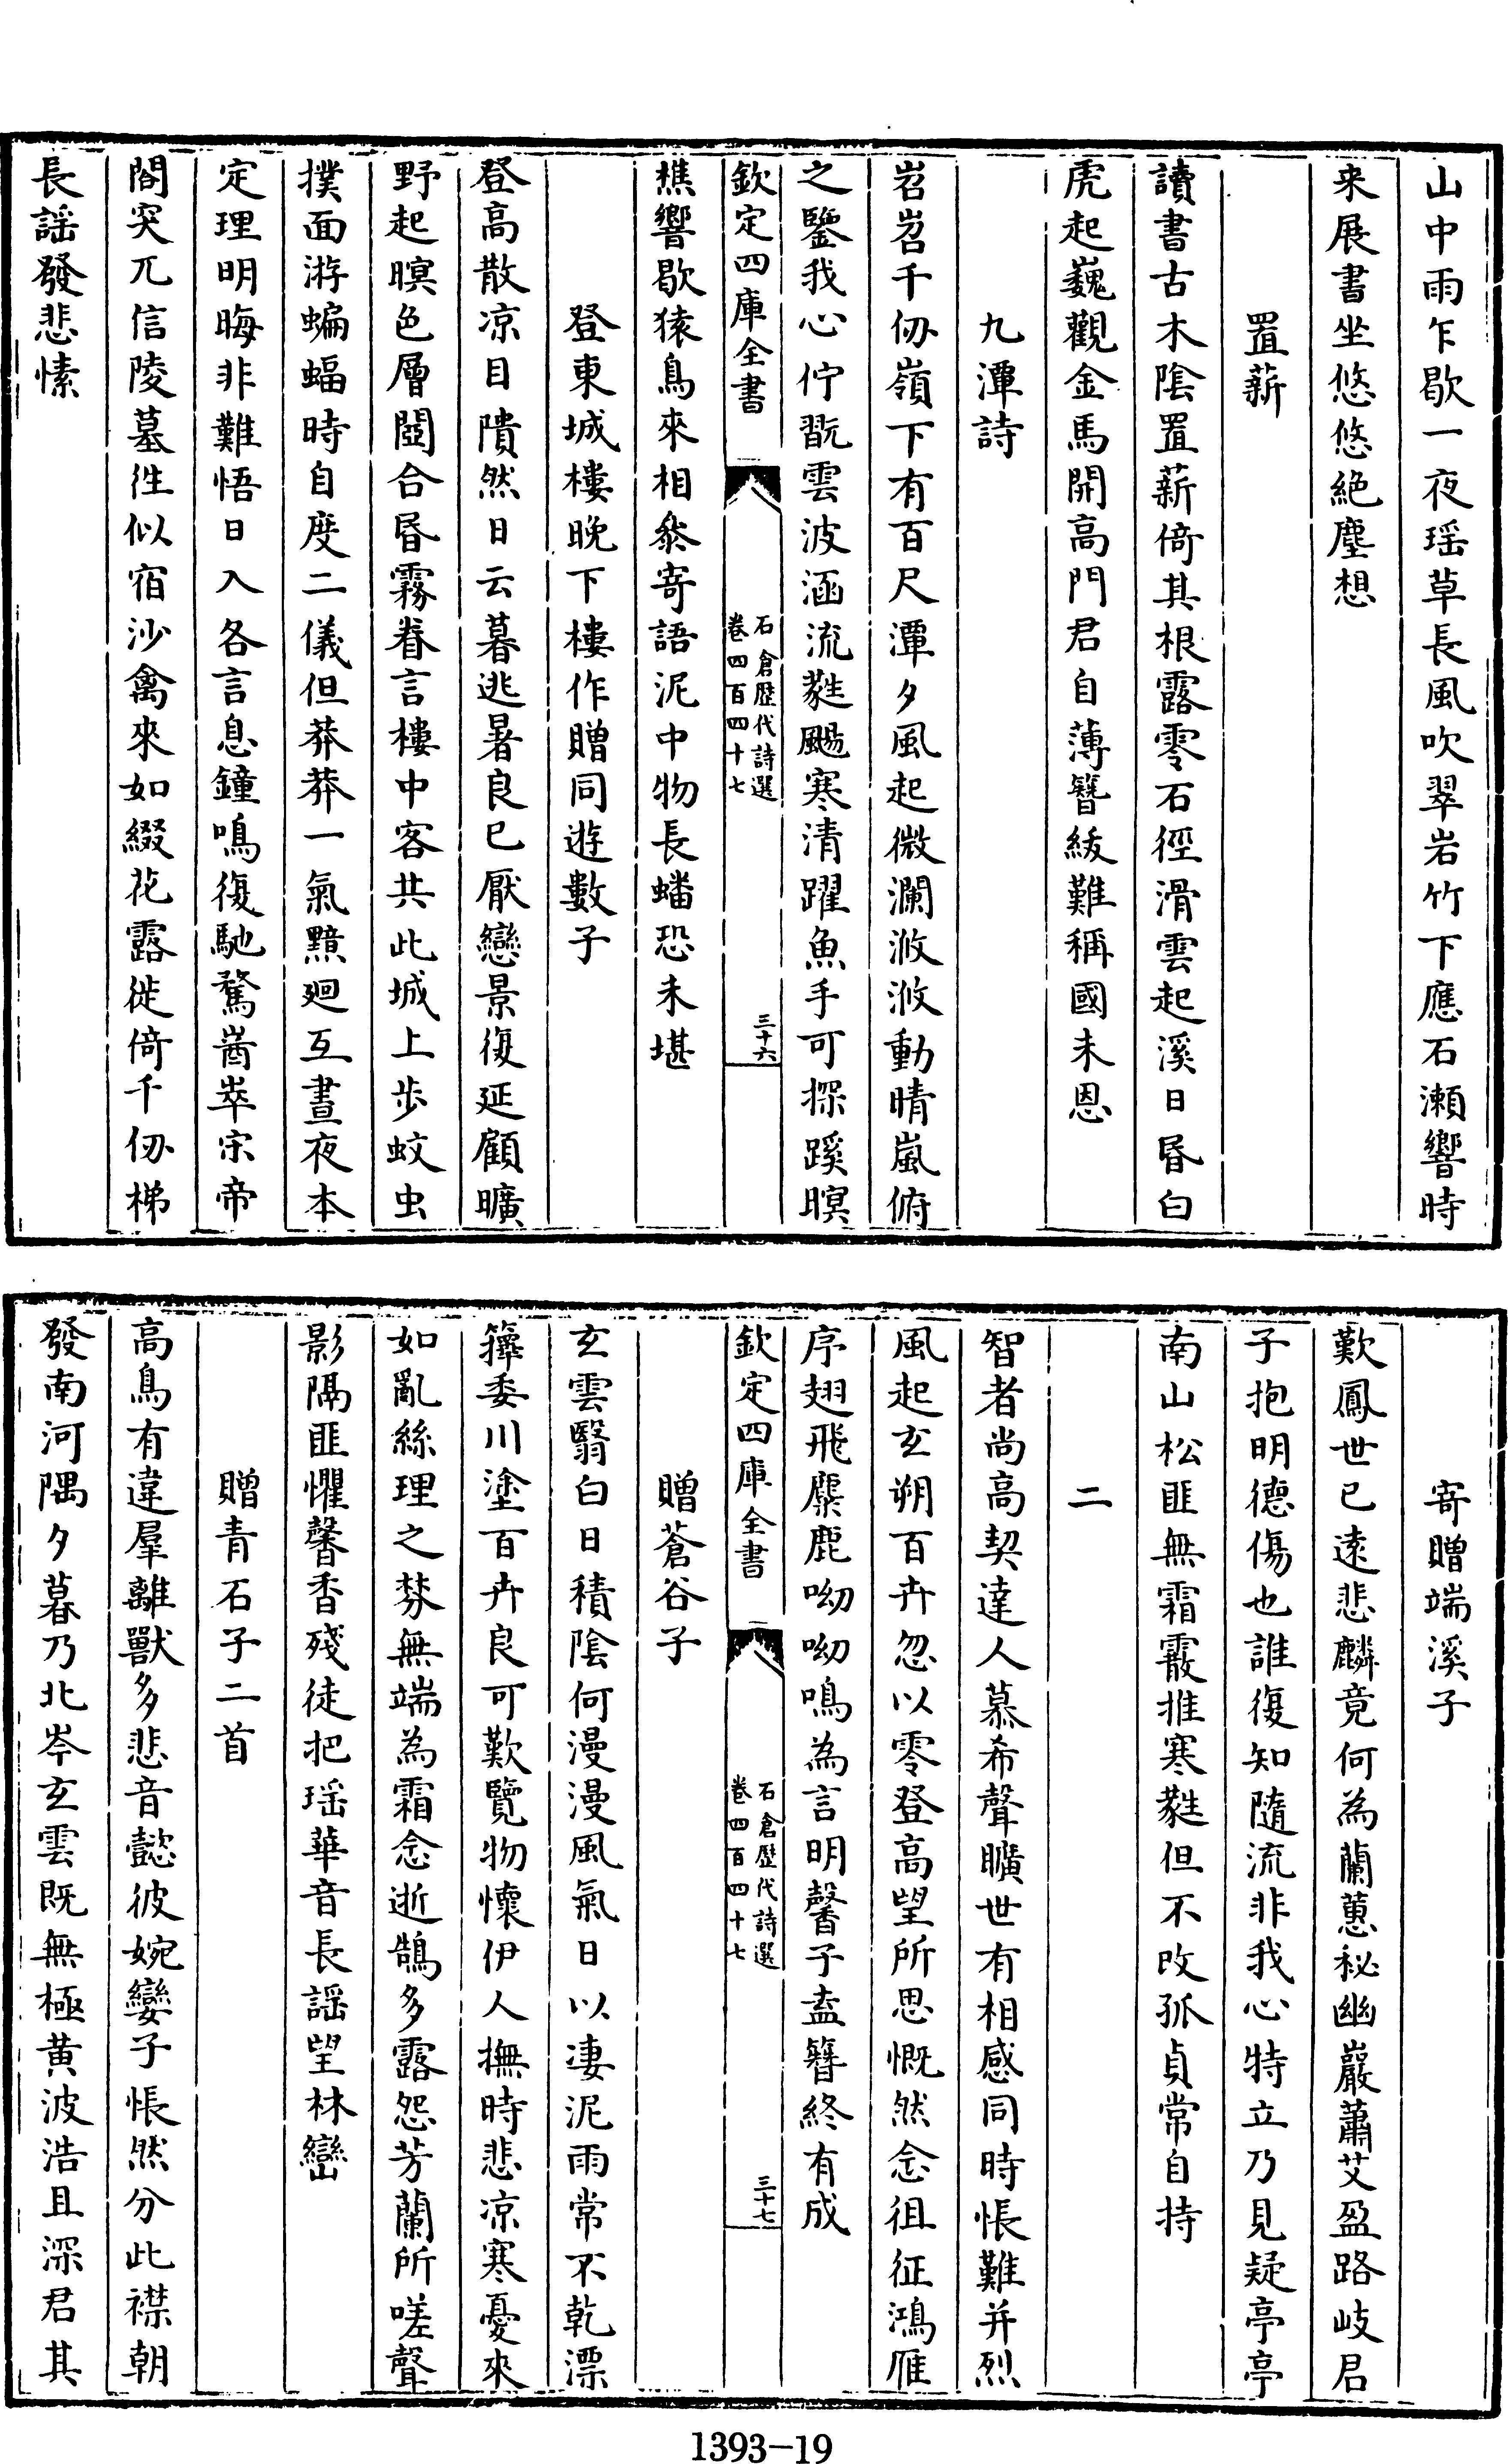 山中雨乍歇一夜瑶草長風吹翠岩竹下應石瀬響時
来展書坐悠悠絕塵想
罝薪
讀書古木陰罝薪倚其根露零石徑滑雲起溪日昏白
虎起巍觀金馬開高門君自薄簪紱難稱國未恩
九潭詩
岧岧千仞嶺下有百尺潭夕風起微瀾浟浟動晴嵐俯
之鑒我心佇翫雲波涵流㽔颺寒清躍魚手可探蹊暝
欽定四庫全書
石倉歴代詩選
卷四百四十七
三十六
樵響歇猿鳥來相叅寄語泥中物長蟠恐未堪
登東城樓晚下樓作贈同遊數子
登高散凉目隤然日云暮逃暑良已厭戀景復延顧曠
野起暝色層闉合昏霧眷言樓中客共此城上步蚊虫
撲面游蝙蝠時自度二儀但莽莽一氣黯廻互晝夜本
定理明晦非難悟日入各言息鐘鳴復馳騖崗崒宗帝
閣突兀信陵墓徃似宿沙禽來如綴花露徙倚千仞梯
長謡發悲愫
寄贈端溪子
歎鳳世已逺悲麟竟何為蘭蕙秘幽巖蕭艾盈路岐君
子抱明德傷也誰復知隨流非我心特立乃見疑亭亭
南山松匪無霜霰推寒㽔但不改孤貞常自持
二
智者尚高契達人慕希聲曠世有相感同時悵難并烈
風起玄朔百卉忽以零登高望所思慨然念徂征鴻雁
序翅飛麋鹿呦呦鳴為言明馨子盍簪終有成
欽定四庫全書
石倉歴代詩選
卷四百四十七
三十七
贈蒼谷子
玄雲翳白日積陰何漫漫風氣日以淒泥雨常不乾漂
籜委川塗百卉良可歎覽物懷伊人撫時悲凉寒憂來
如亂絲理之棼無端為霜念逝鵠多露怨芳蘭所嗟聲
影隔匪懼馨香殘徒把瑶華音長謡望林巒
贈青石子二首
高鳥有違羣離獸多悲音懿彼婉孌子悵然分此襟朝
發南河隅夕暮乃北岑玄雲既無極黄波浩且深君其
1393-19